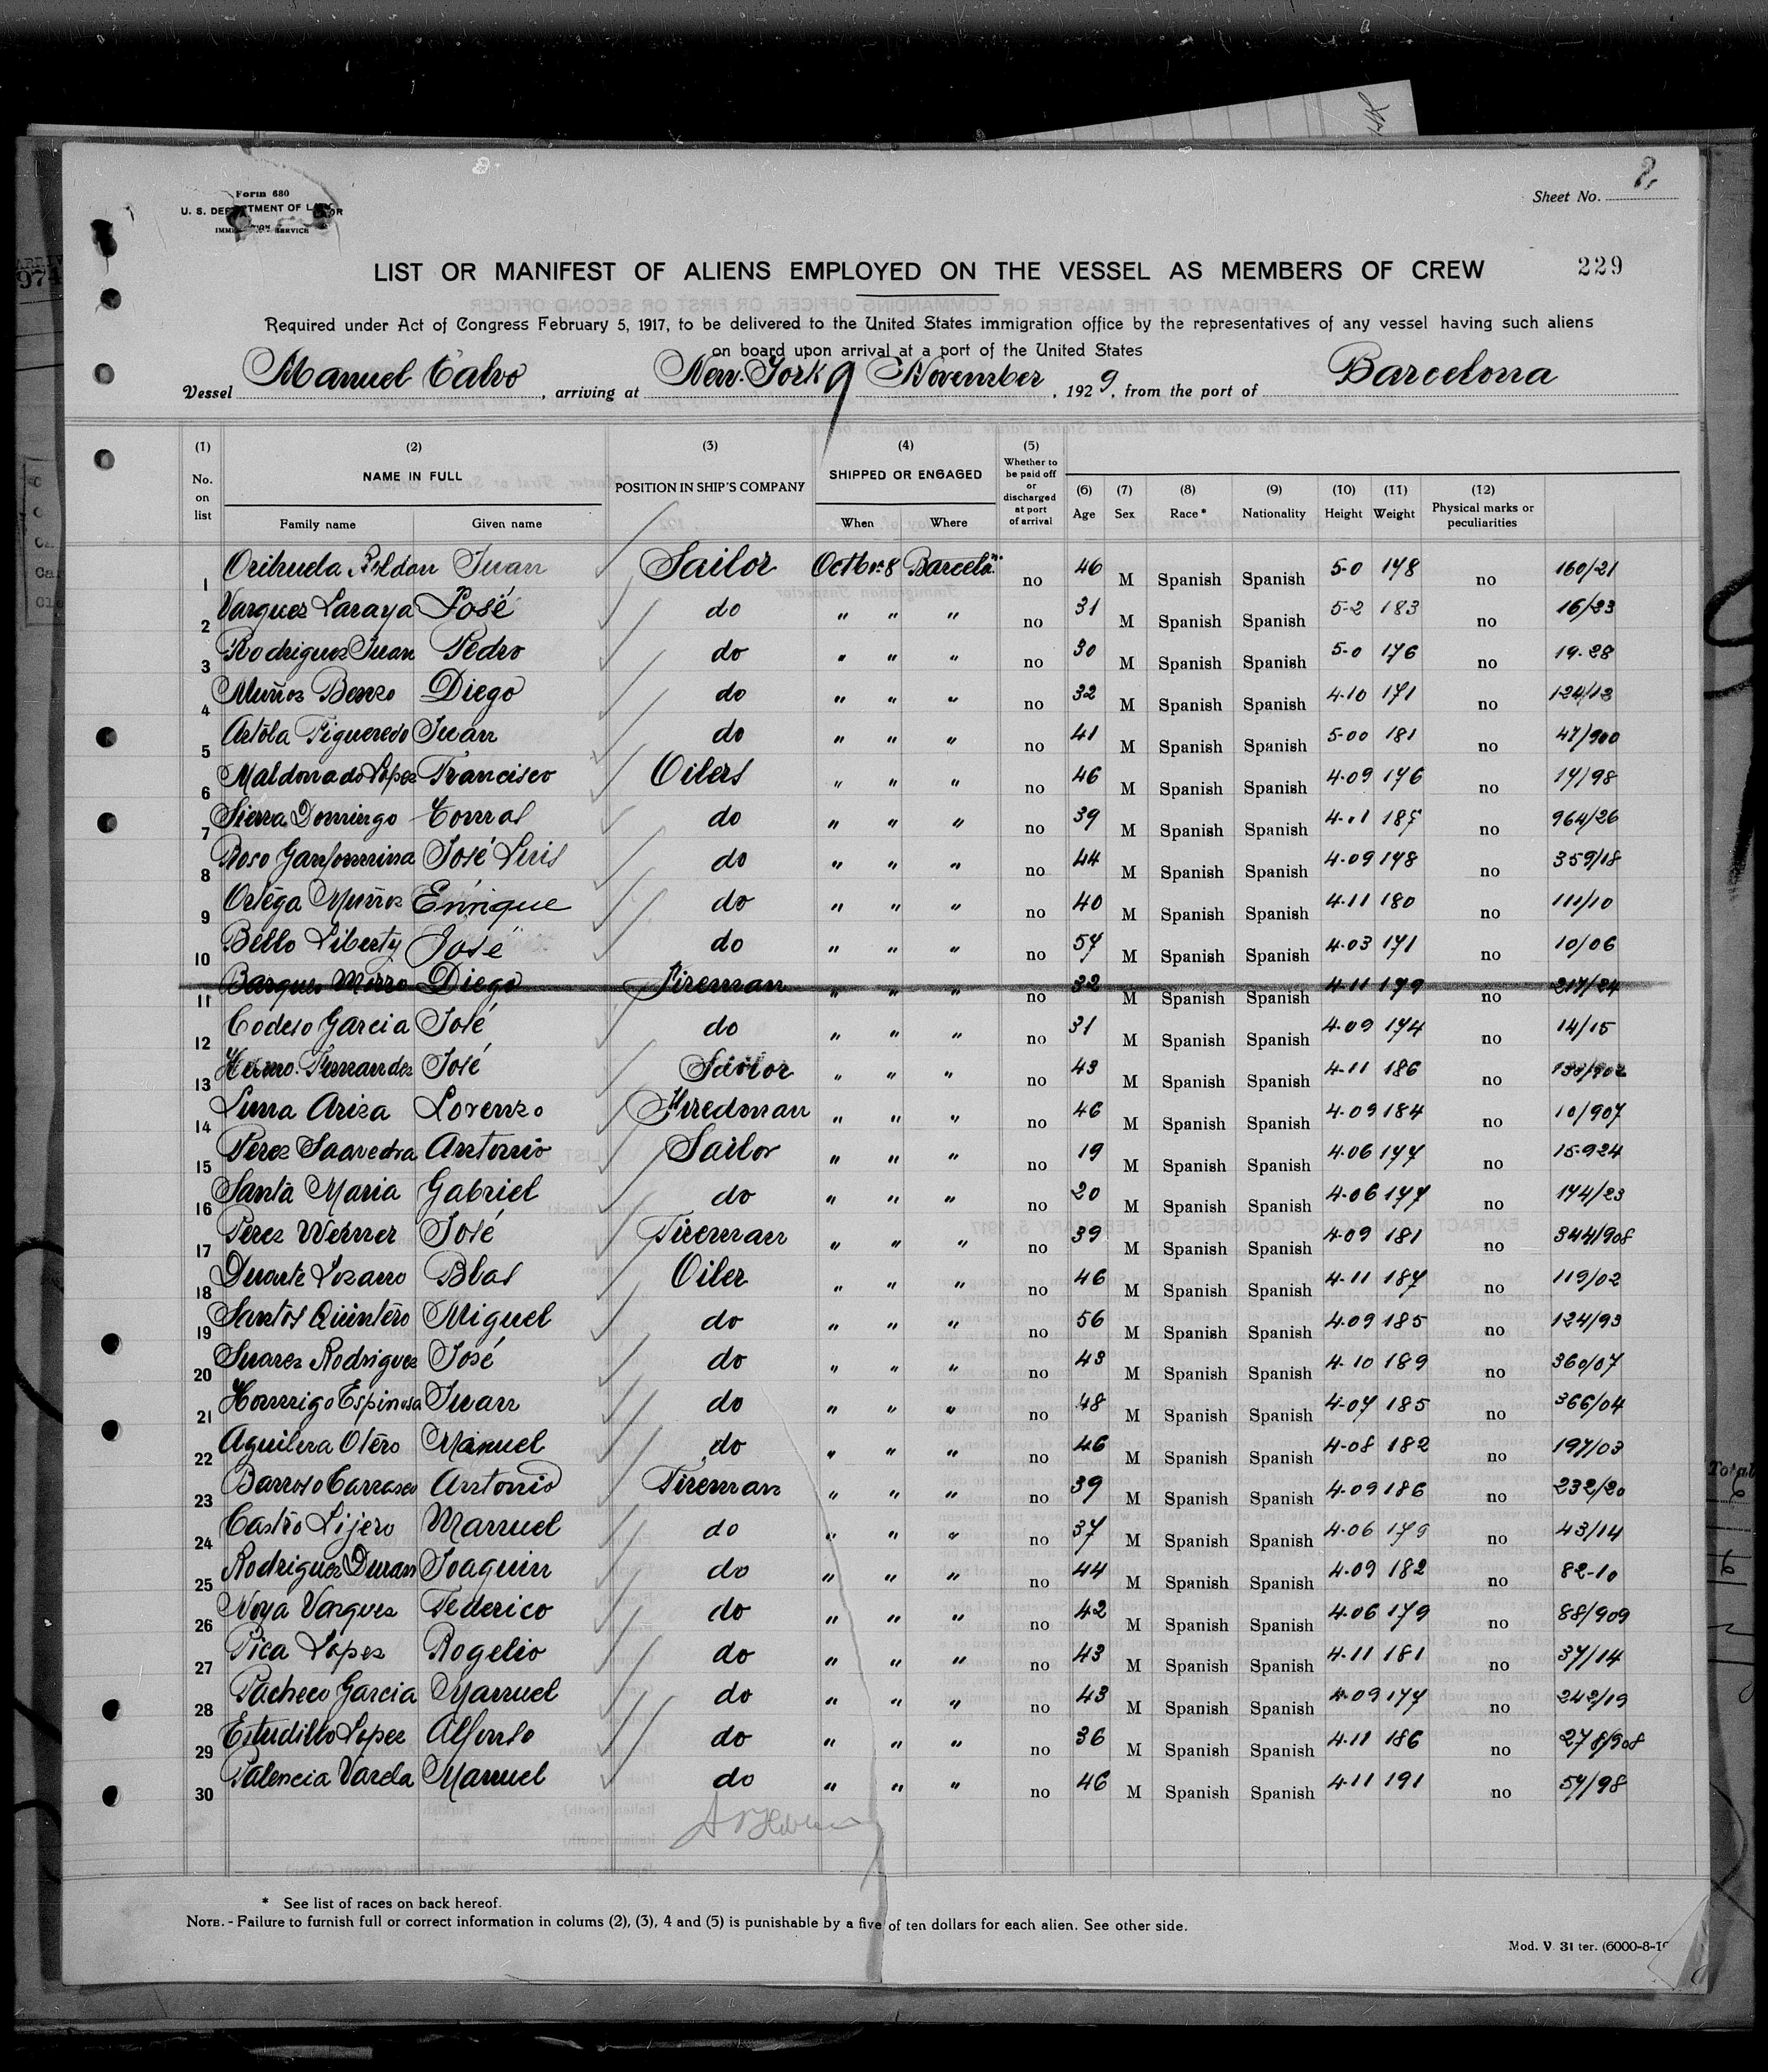 Form 680
U. S. DEPARTMENT OF LABOR
IMMIGRATION SERVICE
Sheet No. 2,
LIST OR MANIFEST OF ALIENS EMPLOYED ON THE VESSEL AS MEMBERS OF CREW 229
Required under Act of Congress February 5, 1917, to be delivered to the United States immigration office by the representatives of any vessel having such aliens
on board upon arrival at a port of the United States
Vessel Manuel Calvo, arriving at New-York 9 November, 1929, from the port of Barcelona
(1) No. on list (2) NAME IN FULL Family name Given name (3) POSITION IN SHIP'S COMPANY (4) SHIPPED OR ENGAGED When Where (5) Whether to be paid off or discharged at port of arrival (6) Age (7) Sex (8) Race * (9) Nationality (10) Height (11) Weight (12) Physical marks or peculiarities
1 Orihuela Roldan Juan Sailor Octbre 8 Barcelona no 46 M Spanish Spanish 5-0 178 no 160/21
2 Vazquez Laraya José do " " " no 31 M Spanish Spanish 5-2 183 no 16/23
3 Rodriguez Juan Pedro do " " " no 30 M Spanish Spanish 5-0 176 no 19-28
4 Muñoz Benzo Diego do " " " no 32 M Spanish Spanish 4-10 171 no 124/13
5 Artola Figueredo Juan do " " " no 41 M Spanish Spanish 5-00 181 no 47/900
6 Maldonado Lopez Francisco Oilers " " " no 46 M Spanish Spanish 4-09 176 no 17/98
7 Sierra Domingo Tomas do " " " no 39 M Spanish Spanish 4-11 187 no 964/26
8 Roso José Luis do " " " no 44 M Spanish Spanish 4-09 178 no 359/18
9 Ortega Muñoz Enrique do " " " no 40 M Spanish Spanish 4-11 180 no 111/10
10 Bello Liberty José do " " " no 57 M Spanish Spanish 4-03 171 no 10/06
11 Barques Morro Diego Fireman " " " no 32 M Spanish Spanish 4-11 179 no 217/24
12 Codeso Garcia José do " " " no 31 M Spanish Spanish 4-09 174 no 14/15
13 Fernandez José Sailor " " " no 43 M Spanish Spanish 4-11 186 no
14 Luna Ariza Lorenzo Firedman " " " no 46 M Spanish Spanish 4-09 184 no 10/907
15 Perez Saavedra Antonio Sailor " " " no 19 M Spanish Spanish 4-06 177 no 15-924
16 Santa Maria Gabriel do " " " no 20 M Spanish Spanish 4-06 177 no 174/23
17 Perez Werner José Fireman " " " no 39 M Spanish Spanish 4-09 181 no 344/908
18 Duarte Lozano Blas Oiler " " " no 46 M Spanish Spanish 4-11 187 no 119/02
19 Santos Quintero Miguel do " " " no 56 M Spanish Spanish 4-09 185 no 124/93
20 Suarez Rodriguez José do " " " no 43 M Spanish Spanish 4-10 189 no 360/07
21 Hormigo Espinosa Juan do " " " no 48 M Spanish Spanish 4-07 185 no 366/04
22 Aguilera Otero Manuel do " " " no 46 M Spanish Spanish 4-08 182 no 197/03
23 Barroso Carrasco Antonio Fireman " " " no 39 M Spanish Spanish 4-09 186 no 232/20
24 Castro Lijero Manuel do " " " no 37 M Spanish Spanish 4-06 179 no 43/14
25 Rodriguez Duran Joaquin do " " " no 44 M Spanish Spanish 4-09 182 no 82-10
26 Noya Vazquez Federico do " " " no 42 M Spanish Spanish 4-06 179 no 88/909
27 Pica Lopez Rogelio do " " " no 43 M Spanish Spanish 4-11 181 no 37/14
28 Pacheco Garcia Manuel do " " " no 43 M Spanish Spanish 4-09 177 no 242/19
29 Estudillo Lopez Alfonso do " " " no 36 M Spanish Spanish 4-11 186 no 278/908
30 Palencia Varela Manuel do " " " no 46 M Spanish Spanish 4-11 191 no 57/98
* See list of races on back hereof.
NOTE. - Failure to furnish full or correct information in colums (2), (3), 4 and (5) is punishable by a five of ten dollars for each alien. See other side.
Mod. V. 31 ter. (6000-8-19